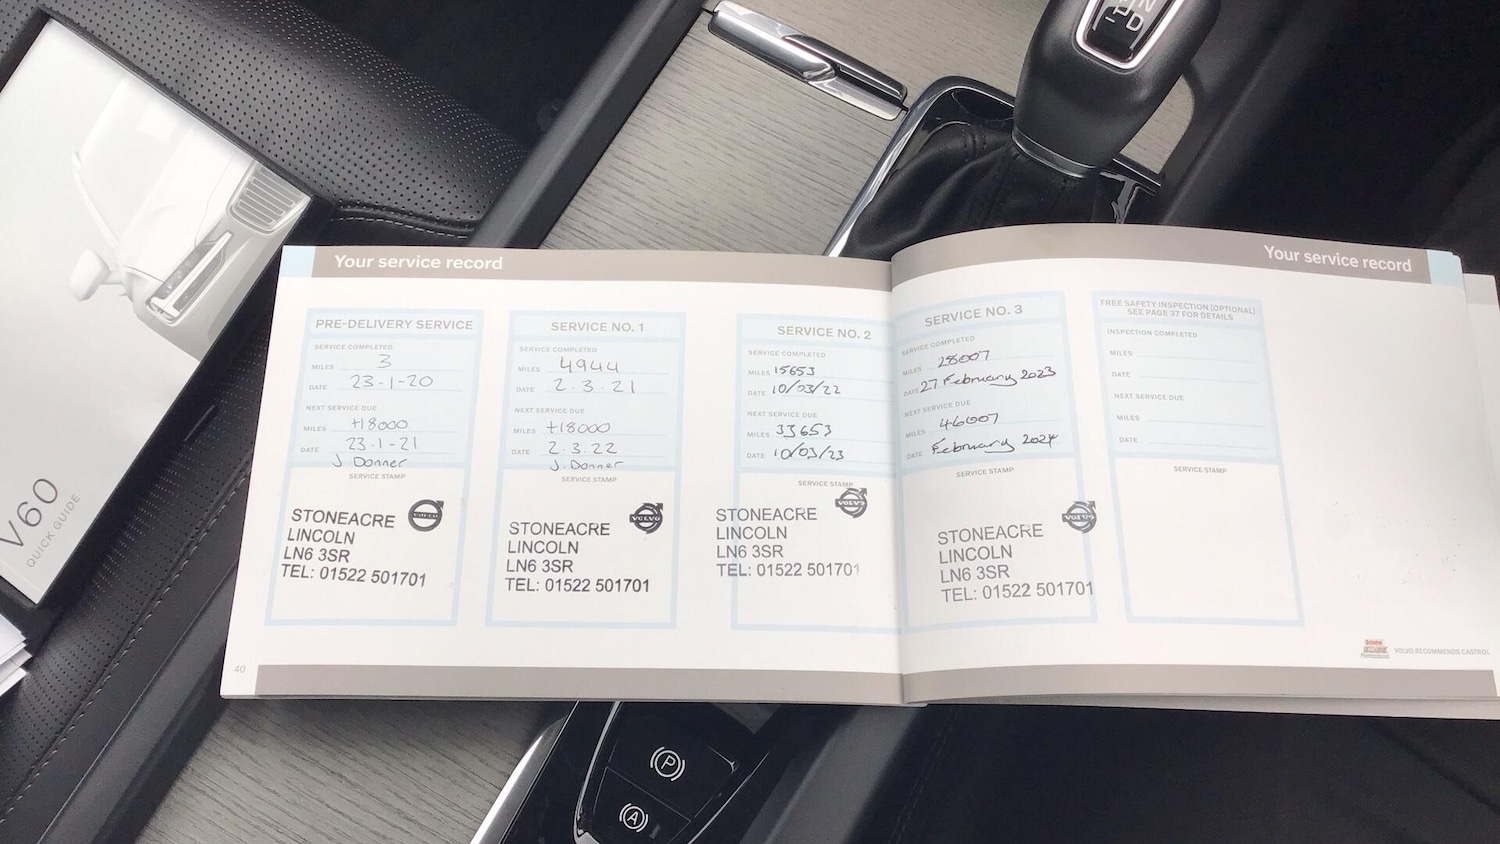 V60
QUICK GUIDE
N
D
Your service record
PRE-DELIVERY SERVICE
SERVICE COMPLETED
MILES 3
DATE 23-1-20
NEXT SERVICE DUE
MILES +18000
DATE 23-1-21
J. Donner
SERVICE STAMP
STONEACRE
LINCOLN
LN6 3SR
TEL: 01522 501701
SERVICE NO. 1
SERVICE COMPLETED
MILES 4944
DATE 2.3.21
NEXT SERVICE DUE
MILES +18000
DATE 2.3.22
J. Donner
SERVICE STAMP
VOLVO
STONEACRE
LINCOLN
LN6 3SR
TEL: 01522 501701
SERVICE NO. 2
SERVICE COMPLETED
MILES 15653
DATE 10/03/22
NEXT SERVICE DUE
MILES 33653
DATE 10/03/23
SERVICE STAMP
VOLVO
STONEACRE
LINCOLN
LN6 3SR
TEL: 01522 501701
40
Your service record
SERVICE NO. 3
SERVICE COMPLETED
MILES 28007
DATE 27 February 2023
NEXT SERVICE DUE
MILES 46007
DATE February 2024
SERVICE STAMP
VOLVO
STONEACRE
LINCOLN
LN6 3SR
TEL: 01522 501701
FREE SAFETY INSPECTION (OPTIONAL)
SEE PAGE 37 FOR DETAILS
INSPECTION COMPLETED
MILES
DATE
NEXT SERVICE DUE
MILES
DATE
SERVICE STAMP
Castrol
EDGE
Professional
VOLVO RECOMMENDS CASTROL
P
A